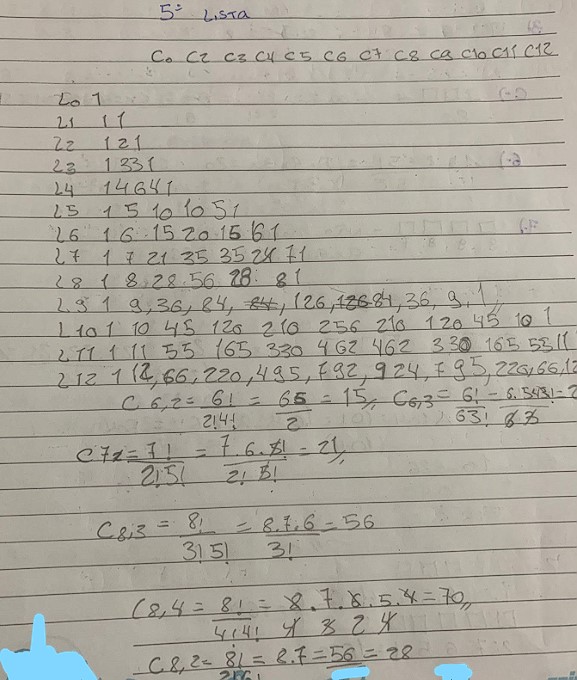 5ª Lista
C0 C2 C3 C4 C5 C6 C7 C8 C9 C10 C11 C12
L0 1
L1 1 1
L2 1 2 1
L3 1 3 3 1
L4 1 4 6 4 1
L5 1 5 10 10 5 1
L6 1 6 15 20 15 6 1
L7 1 7 21 35 35 21 7 1
L8 1 8 28 56 28 8 1
L9 1 9, 36, 84, 84, 126, 126 84, 36, 9, 1
L10 1 10 45 120 210 256 210 120 45 10 1
L11 1 11 55 165 330 462 462 330 165, 55 11
L12 1 12, 66, 220, 495, 792, 924, 795, 220, 66, 12
C 6,2 = 6! / 2!4! = 6.5 / 2 = 15,, C6,3 = 6! / 3! = 6.5.4.3! = 2
C 7 2 = 7! / 2!5! = 7.6.5! / 2! 5! = 21,,
C8,3 = 8! / 3! 5! = 8.7.6 / 3! = 56
C8,4 = 8! / 4!4! = 8.7.6.5.4 / 4 3 2 4 = 70,,
C8,2 = 8! / 2!6! = 8.7 = 56 = 28